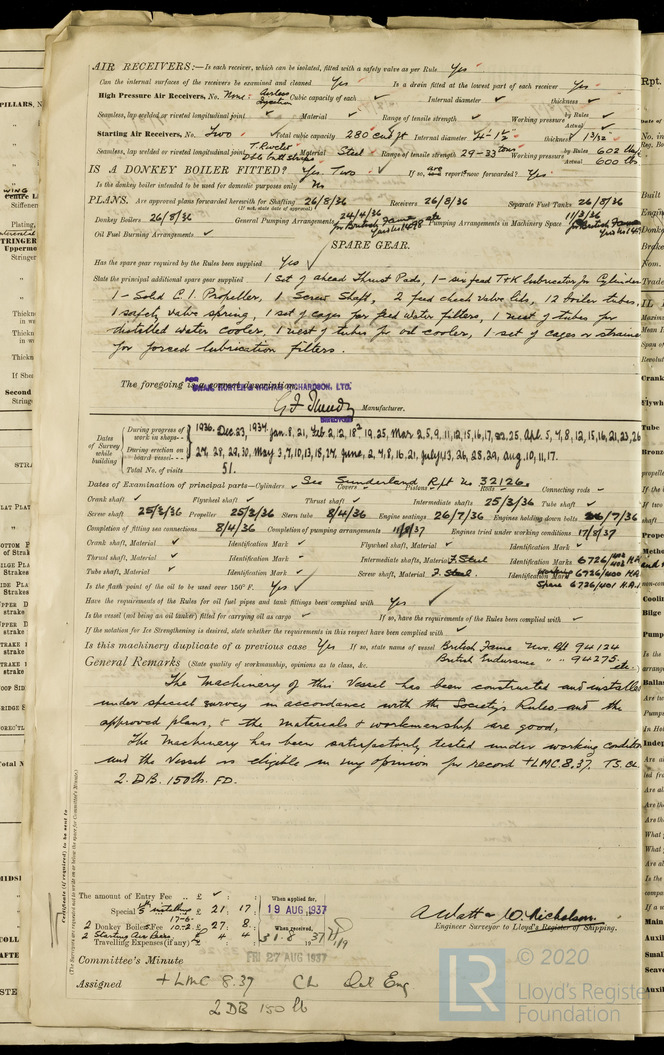 AIR RECEIVERS:—Is each receiver, which can be isolated, fitted with a safety valve as per Rule Yes
Can the internal surfaces of the receivers be examined and cleaned Yes Is a drain fitted at the lowest part of each receiver Yes
High Pressure Air Receivers, No. None: Airless Injection Cubic capacity of each ✓ Internal diameter ✓ thickness ✓
Seamless, lap welded or riveted longitudinal joint ✓ Material ✓ Range of tensile strength ✓ Working pressure by Rules ✓ Actual ✓
Starting Air Receivers, No. Two Total cubic capacity 280 cub ft Internal diameter thickness 1 1/32"
Seamless, lap welded or riveted longitudinal joint T. Riveted Dble butt straps Material Steel Range of tensile strength 29-33 tons Working pressure by Rules 602 lbs Actual 600 lbs
IS A DONKEY BOILER FITTED? Yes. Two If so, is a report now forwarded? Yes.
Is the donkey boiler intended to be used for domestic purposes only No
PLANS. Are approved plans forwarded herewith for Shafting 26/8/36 Receivers 26/8/36 Separate Fuel Tanks 26/8/36
(If not, state date of approval)
Donkey Boilers 26/8/36 General Pumping Arrangements 24/4/36 for British Fame Yard No 1498 Pumping Arrangements in Machinery Space 11/3/36 for British Fame
Oil Fuel Burning Arrangements ✓
SPARE GEAR.
Has the spare gear required by the Rules been supplied Yes ✓
State the principal additional spare gear supplied 1 set of ahead Thrust Pads, 1- six feed T&K lubricator for Cylinder
1 - Solid C.I. Propeller, 1 Screw Shaft, 2 feed check valve lids, 12 boiler tubes,
1 safety valve spring, 1 set of cages for feed water filters, 1 nest of tubes for
distilled water cooler, 1 nest of tubes for oil cooler, 1 set of cages or strainers
for forced lubrication filters.
The foregoing is a correct description,
FOR SWAN, HUNTER & WIGHAM RICHARDSON, LTD.
Manufacturer.
Dates of Survey while building
During progress of work in shops - - 1936. Dec. 23, 1937. Jan. 8, 21, Feb 2, 12, 18, 19, 25, Mar 2, 5, 9, 11, 12, 15, 16, 17, 22, 25, Apl. 5, 7, 8, 12, 15, 16, 21, 23, 26
During erection on board vessel - - 27, 28, 29, 30, May 3, 7, 10, 13, 18, 24, June, 2, 4, 8, 16, 21, July 13, 26, 28, 29, Aug 10, 11, 17.
Total No. of visits 51.
Dates of Examination of principal parts—Cylinders ✓ Covers ✓ Pistons ✓ Rods ✓ Connecting rods ✓
See Sunderland Rpt No 32126
Crank shaft ✓ Flywheel shaft ✓ Thrust shaft ✓ Intermediate shafts 25/3/36 Tube shaft ✓
Screw shaft 25/3/36 Propeller 25/3/36 Stern tube 8/4/36 Engine seatings 26/7/36 Engines holding down bolts 26/7/36
Completion of fitting sea connections 8/4/36 Completion of pumping arrangements 11/8/37 Engines tried under working conditions 17/8/37
Crank shaft, Material ✓ Identification Mark ✓ Flywheel shaft, Material ✓ Identification Mark ✓
Thrust shaft, Material ✓ Identification Mark ✓ Intermediate shafts, Material F. Steel Identification Marks 6726
Tube shaft, Material ✓ Identification Mark ✓ Screw shaft, Material F. Steel. Identification Mark working 6726/400 H.A.
Spare 6726/401 H.A.
Is the flash point of the oil to be used over 150° F. Yes ✓
Have the requirements of the Rules for oil fuel pipes and tank fittings been complied with Yes ✓
Is the vessel (not being an oil tanker) fitted for carrying oil as cargo ✓ If so, have the requirements of the Rules been complied with ✓
If the notation for Ice Strengthening is desired, state whether the requirements in this respect have been complied with ✓
Is this machinery duplicate of a previous case Yes If so, state name of vessel British Fame Nwc. Rpt 94124
British Endurance " " 94275 etc.
General Remarks (State quality of workmanship, opinions as to class, &c.
The Machinery of this Vessel has been constructed and installed
under special survey in accordance with the Society's Rules and the
approved plans, & the materials & workmanship are good,
The Machinery has been satisfactorily tested under working conditions
and the Vessel is eligible in my opinion for record +LMC 8.37. TS. CL.
2. D.B. 150lb. FD.
Certificate (if required) to be sent to
The amount of Entry Fee .. £ ✓ : : When applied for,
Special installing £ 21 : 17 : 19 AUG 1937
2 Donkey Boiler Fee £ 27 : 8 : When received,
2 Starting Air Recrs 4 : 4 31.8.1937
Travelling Expenses (if any) £
A Watt & D. Nicholson.
Engineer Surveyor to Lloyd's Register of Shipping.
Committee's Minute FRI 27 AUG 1937
Assigned +LMC 8.37 CL Oil Eng
2 DB 150 lb
LR
© 2020
Lloyd's Register
Foundation